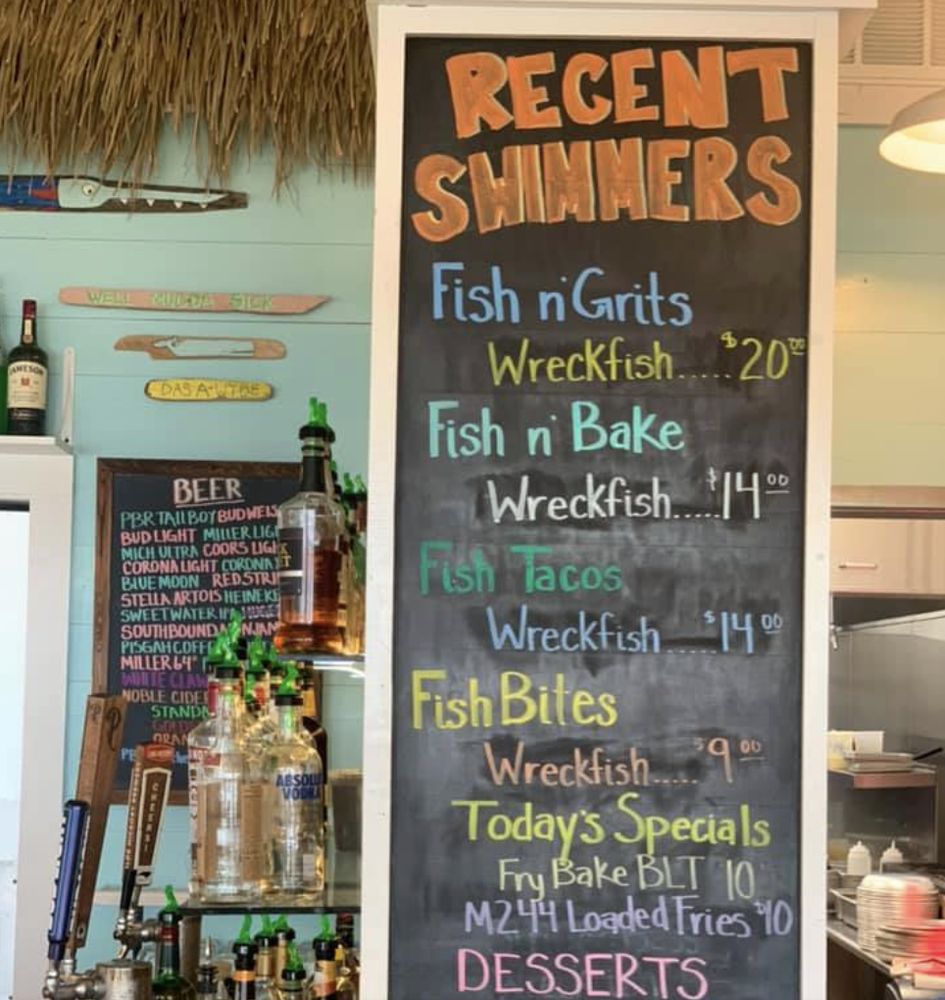 RECENT
SWIMMERS
Fish n' Grits
Wreckfish.....$20.00
Fish n' Bake
Wreckfish.....$14.00
Fish Tacos
Wreckfish.....$14.00
Fish Bites
Wreckfish.....$9.00
Today's Specials
Fry Bake BLT 10
M244 Loaded Fries $10
DESSERTS
WELL MUDDA SICK
DAS A WYBE
JAMESON
BEER
PBR TALLBOY BUDWEIS
BUD LIGHT MILLER LIG
MICH ULTRA COORS LIGH
CORONA LIGHT CORONA
BLUE MOON RED STRI
STELLA ARTOIS HEINEKE
SWEETWATER IPA
SOUTHBOUND
PISGAH COFF
MILLER 64
WHITE CLAW
NOBLE CIDE
STANDA
ORAN
CHEERS!
ABSOLU
VODK